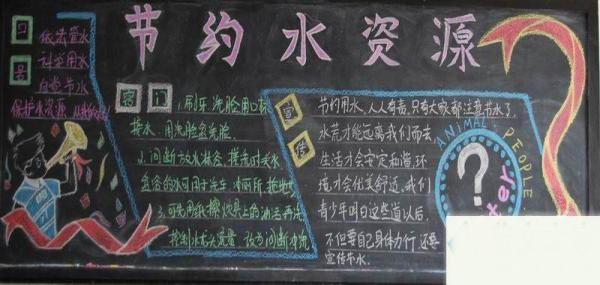 节约水资源
口号
依法管水
科学用水
自觉节水
保护水资源
窍门
1.刷牙、洗脸用口杯
接水,用洗脸盆洗脸
2.间断放水淋浴,搓洗时关水
盆浴的水可用于洗车、冲厕所、拖地
3.可先用纸擦炊具上的油污再洗
宣传
节约用水,人人有责,只有大家都注意节水了,
水荒才能远离我们而去,
生活才会安定和谐,环
境才会优美舒适,我们
青少年明白这些道以后,
不但要自己身体力行,还要
宣传节水。
ANIMAL PEOPLE
?
ter